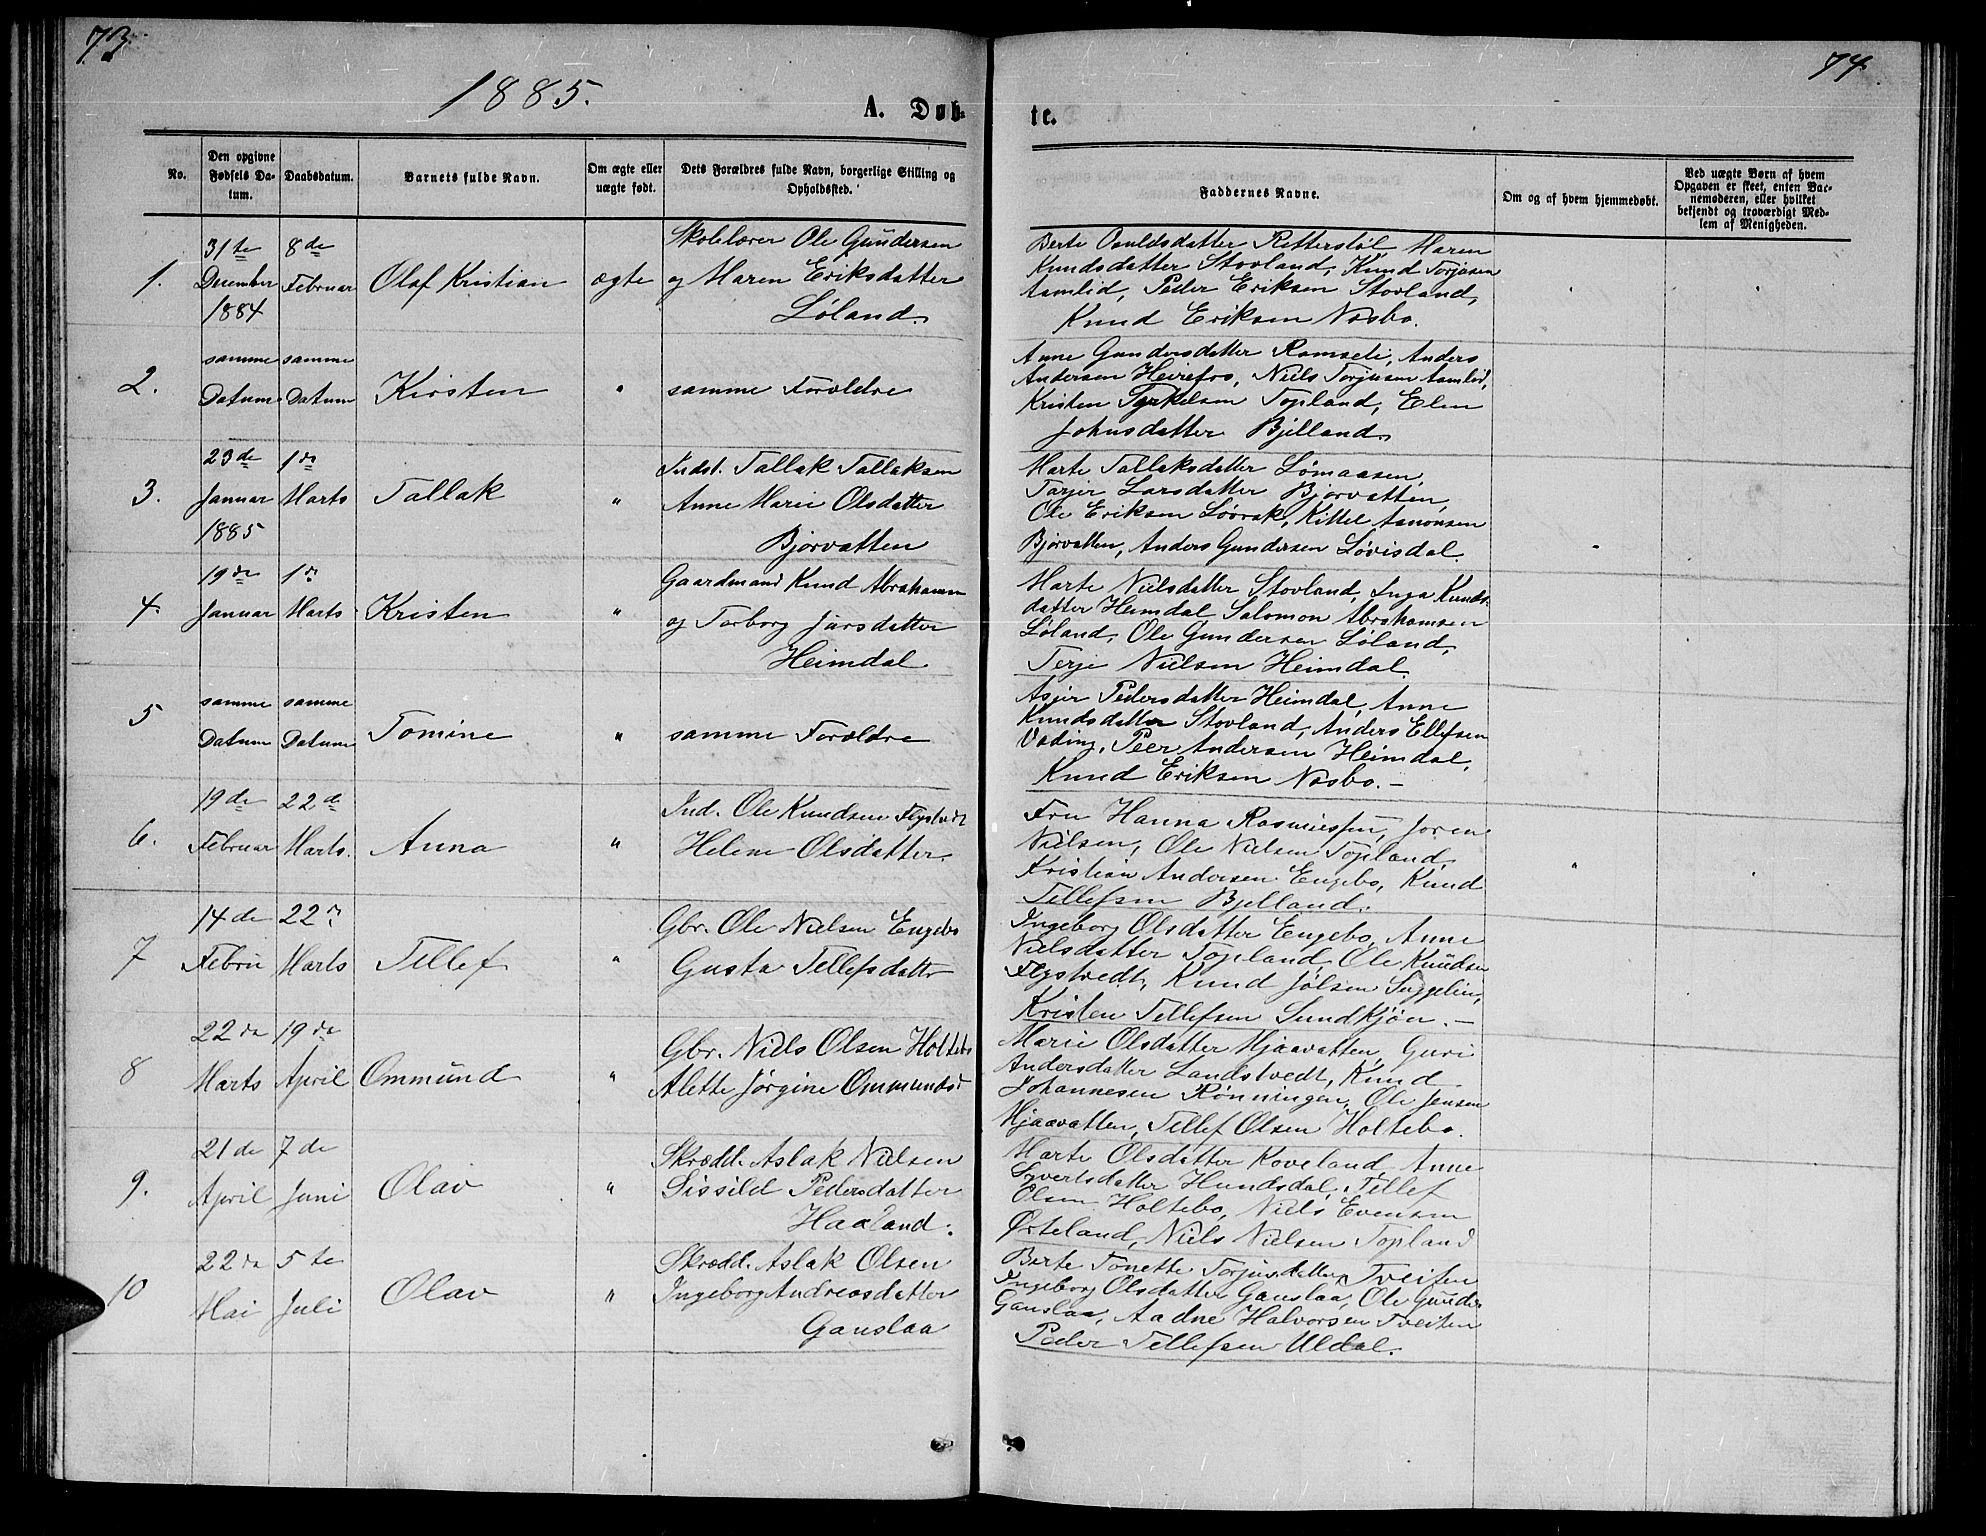 73.
74.
1885.
A. Døb-
te.
No.
Den opgivne
Fødsels Da-
tum.
Daabsdatum.
Barnets fulde Navn.
Om ægte eller
uægte født.
Dets Forældres fulde Navn, borgerlige Stilling og
Opholdssted.
Faddernes Navne.
Om og af hvem hjemmedøbt.
Ved uægte Børn af hvem
Opgaven er skeet, enten Bar-
nemoderen, eller hvilket
bekjendt og troværdigt Med-
lem af Menigheden.
1.
31te
December
1884
8de
Februar
Olaf Kristian
ægte
Skolelærer Ole Gundersen
og Maren Eriksdatter
Løland.
Berte Maren
Knudsdatter Stovland, Knud Torjusen
Aamlid, Peder Eriksen Stovland,
Knud Eriksen Næsbø.
2.
samme
Datum
samme
Datum
Kirsten
"
samme Forældre
Anne Gundersdatter Ramseli, Anders
Andersen Heirefos, Niels Torjusen Aamlid,
Kristen Terkelsen Topland, Elen
Johnsdatter Bjelland.
3.
23de
Januar
1885
1ste
Marts
Tallak
"
Indst. Tallak Tallaksen
Anne Marie Olsdatter
Bjorvatten
Marte Tallaksdatter Lømaasen,
Tarjer Larsdatter Bjorvatten,
Ole Eriksen Løvrak, Kittel Aanonsen
Bjorvatten, Anders Gundersen Løvisdal.
4.
19de
Januar
1ste
Marts
Kristen
"
Gaardmand Knud Abrahamsen
og Torborg Jarsdatter
Heimdal
Marte Nielsdatter Stovland, Inga Knuds-
datter Heimdal, Salomon Abrahamsen
Løland, Ole Gundersen Løland,
Terje Nielsen Heimdal.
5
samme
Datum
samme
Datum
Tomine
"
samme Forældre
Asjer Pedersdatter Heimdal, Anne
Knudsdatter Stovland, Anders Ellefsen
Vading, Peer Andersen Heimdal,
Knud Eriksen Næsbø.-
6.
19de
Februar
22de
Marts.
Anna
"
Ind. Ole Knudsen Flystvedt
Helene Olsdatter.
Fru Hanna Rasmussen, Joren
Nielsen, Ole Nielsen Topland,
Kristian Andersen Engebø, Knud
Tellefsen Bjelland.
7
14de
Febru
22de
Marts
Tellef
"
Gbr. Ole Nielsen Engebø
Gusta Tellefsdatter
Ingeborg Olsdatter Engebø, Anne
Nielsdatter Topland, Ole Knudsen
Flystvedt, Knud Jølsen
Kristen Tellefsen Sundkjøn.-
8
22de
Marts
19de
April
Ommund
"
Gbr. Niels Olsen Holtebo
Alette Jørgine Ommundsd
Marie Olsdatter Hjaavatten, Guri
Andersdatter Landstvedt, Knud
Johannesen Rønningen, Ole Jensen
Hjaavatten, Tellef Olsen Holtebo.
9.
21de
April
7de
Juni
Olav
"
Skrædd. Aslak Nielsen
Sissild Pedersdatter
Haaland.
Marte Olsdatter Koveland, Anne
Syvertsdatter Hundsdal, Tellef
Olsen Holtebo, Niels Evensen
Ørteland, Niels Nielsen Topland
10
22de
Mai
5te
Juli
Olav
"
Skrædd. Aslak Olsen
Ingeborg Andreasdatter
Gauslaa
Berte Tonette Torjusdatter Tveiten
Ingeborg Olsdatter Gauslaa, Ole Gunders
Gauslaa, Aadne Halvorsen Tveiten
Peder Tellefsen Uldal.